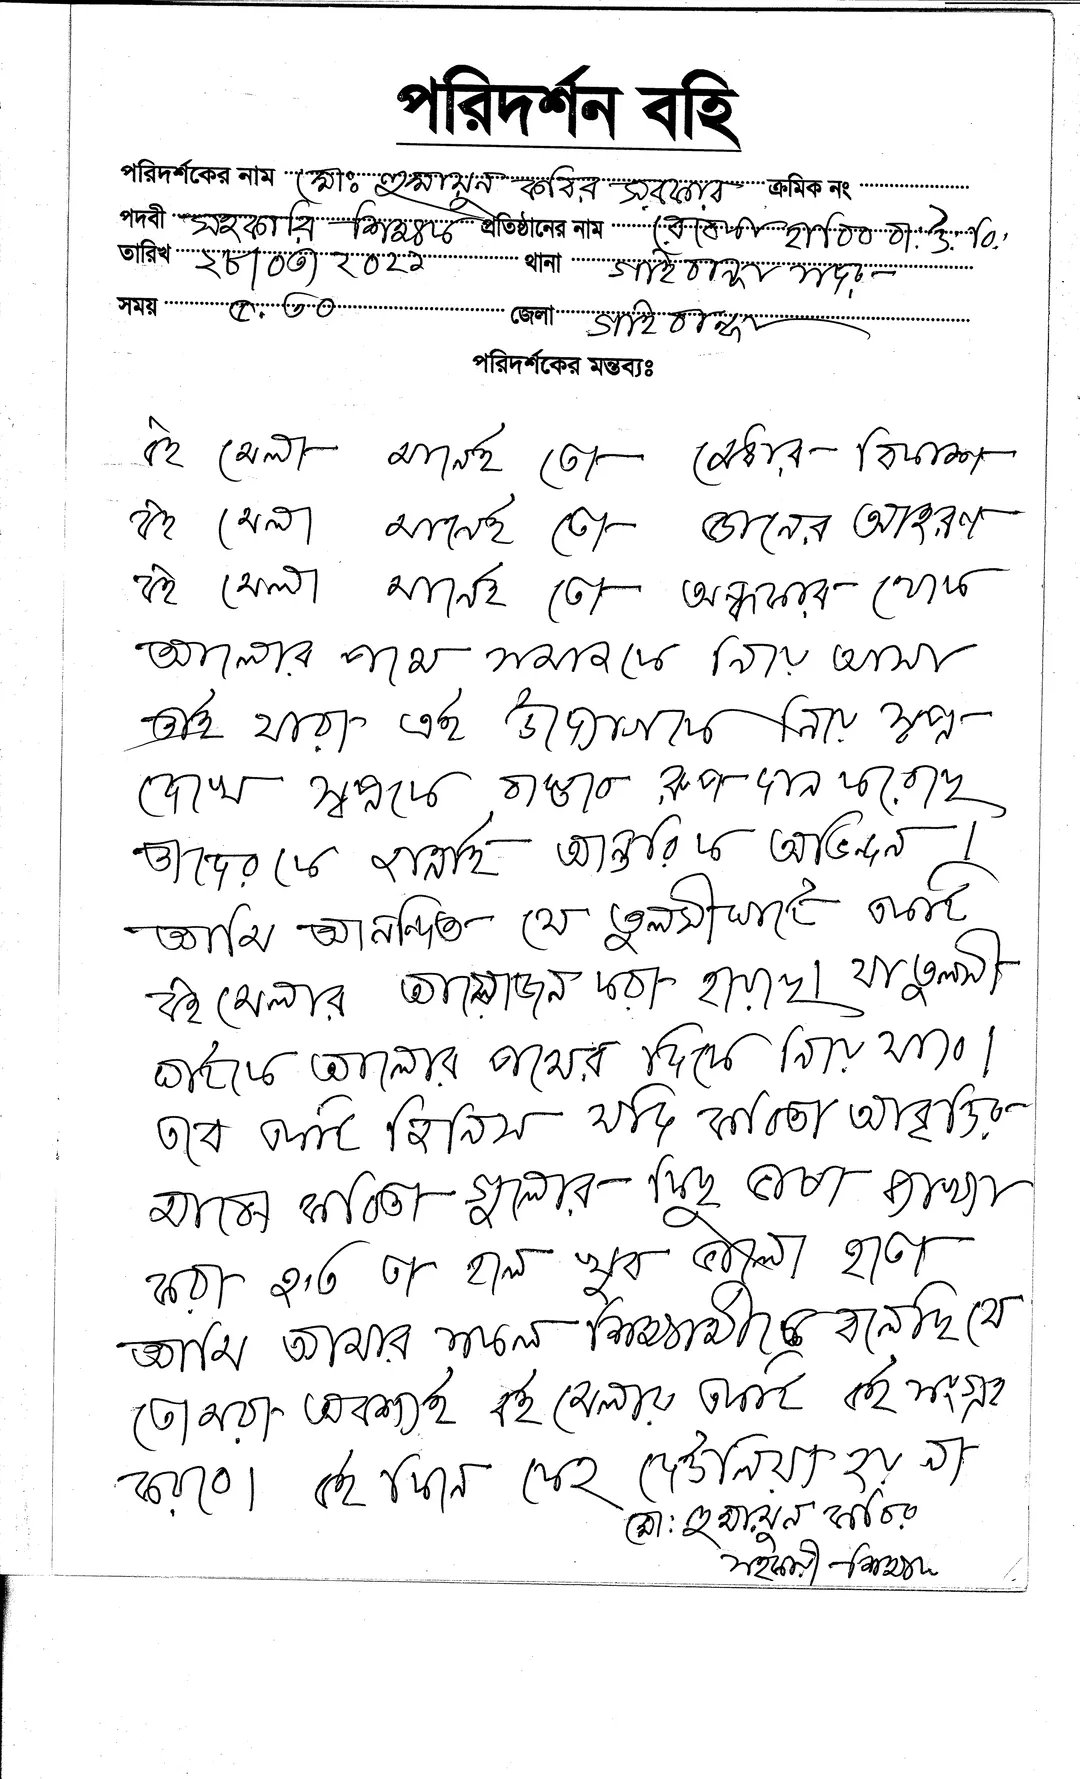 পরিদর্শন বহি
পরিদর্শকের নাম মোঃ হুমায়ুন কবির সরকার ক্রমিক নং
পদবী সহকারি শিক্ষক প্রতিষ্ঠানের নাম হাবিব বা.উ.বি.
তারিখ ২৮/০৩/২০২১ থানা গাইবান্ধা সদর
সময় ৫.৩০ জেলা গাইবান্ধা
পরিদর্শকের মন্তব্যঃ
বই মেলা মানেই তো মেধার বিকাশ
বই মেলা মানেই তো জ্ঞানের আহরণ
বই মেলা মানেই তো অন্ধকার থেকে
আলোর পথে সমাজকে নিয়ে আসা
তাই যারা এই উদ্যোগকে নিয়ে স্বপ্ন
দেখে স্বপ্নকে বাস্তবে রূপ দান করেছে
তাদেরকে জানাই আন্তরিক অভিন্দন।
আমি আনন্দিত যে তুলসীঘাটে একটি
বই মেলার আয়োজন করা হয়েছে। যা তুলসী
ঘাটকে আলোর পথের দিকে নিয়ে যাবে।
তবে একটি জিনিস যদি কবিতা আবৃত্তির
সাথে কবিতা গুলোর কিছু ব্যাখ্যা
করা হত তা হলে খুব ভালো হতো
আমি আমার সকল শিক্ষার্থীকে বলেছি যে
তোমরা অবশ্যই বই মেলায় একটি বই সংগ্রহ
করবে। বই কিনে কেহ দেউলিয়া হয় না
মো: হুমায়ুন কবির
সহকারী শিক্ষক